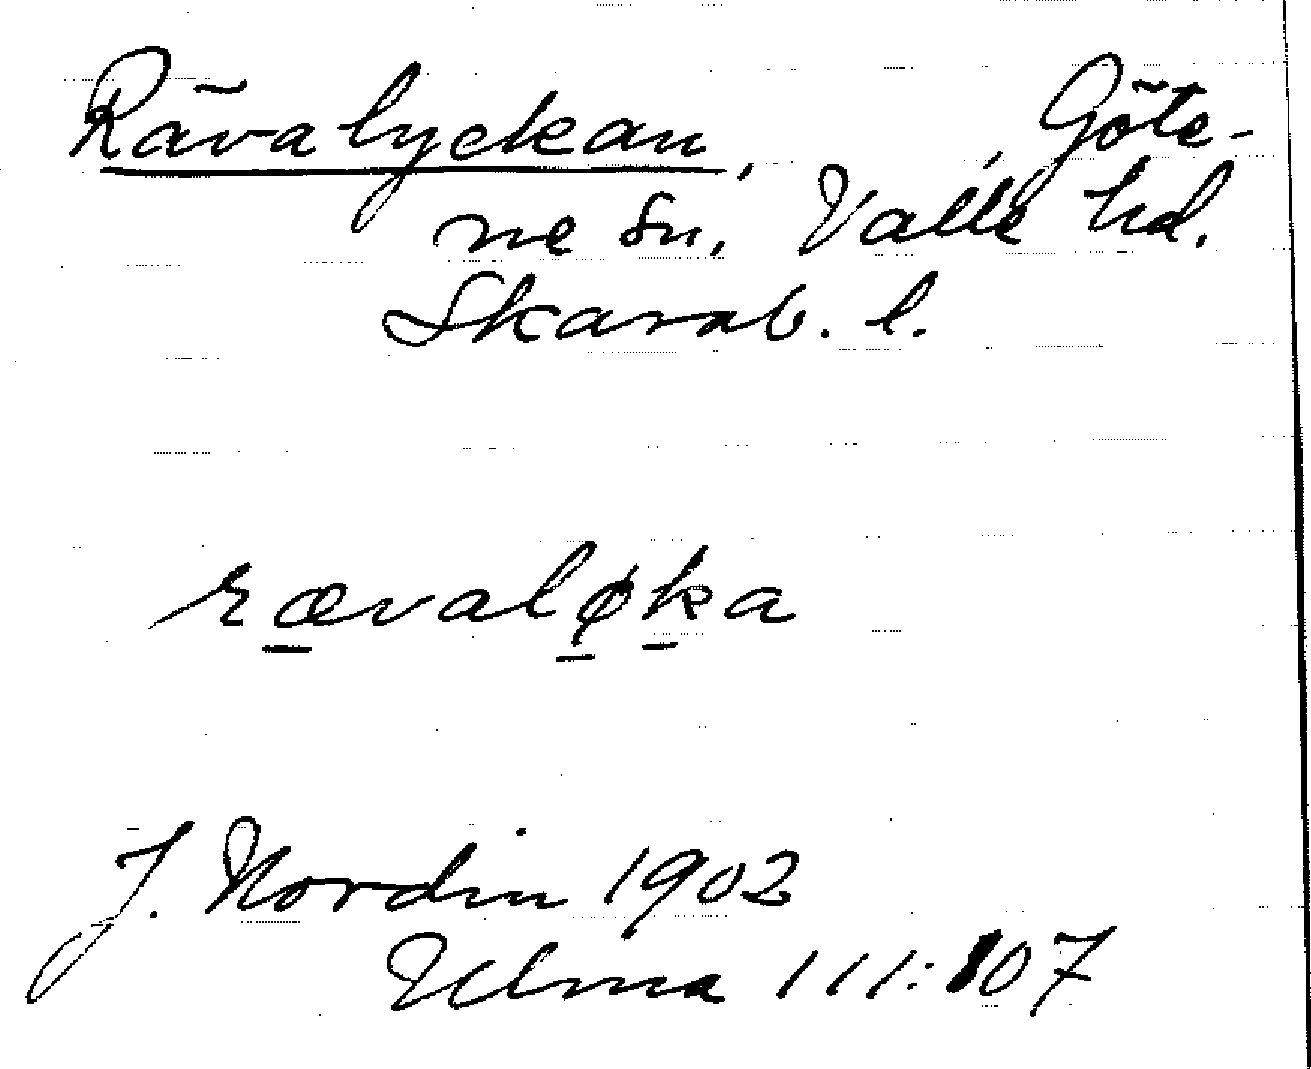 Rävalyckan, Göte-
ne sn, Valle hd.
Skarab. l.
rævaløka
J. Nordin 1902
Ulma 111:107